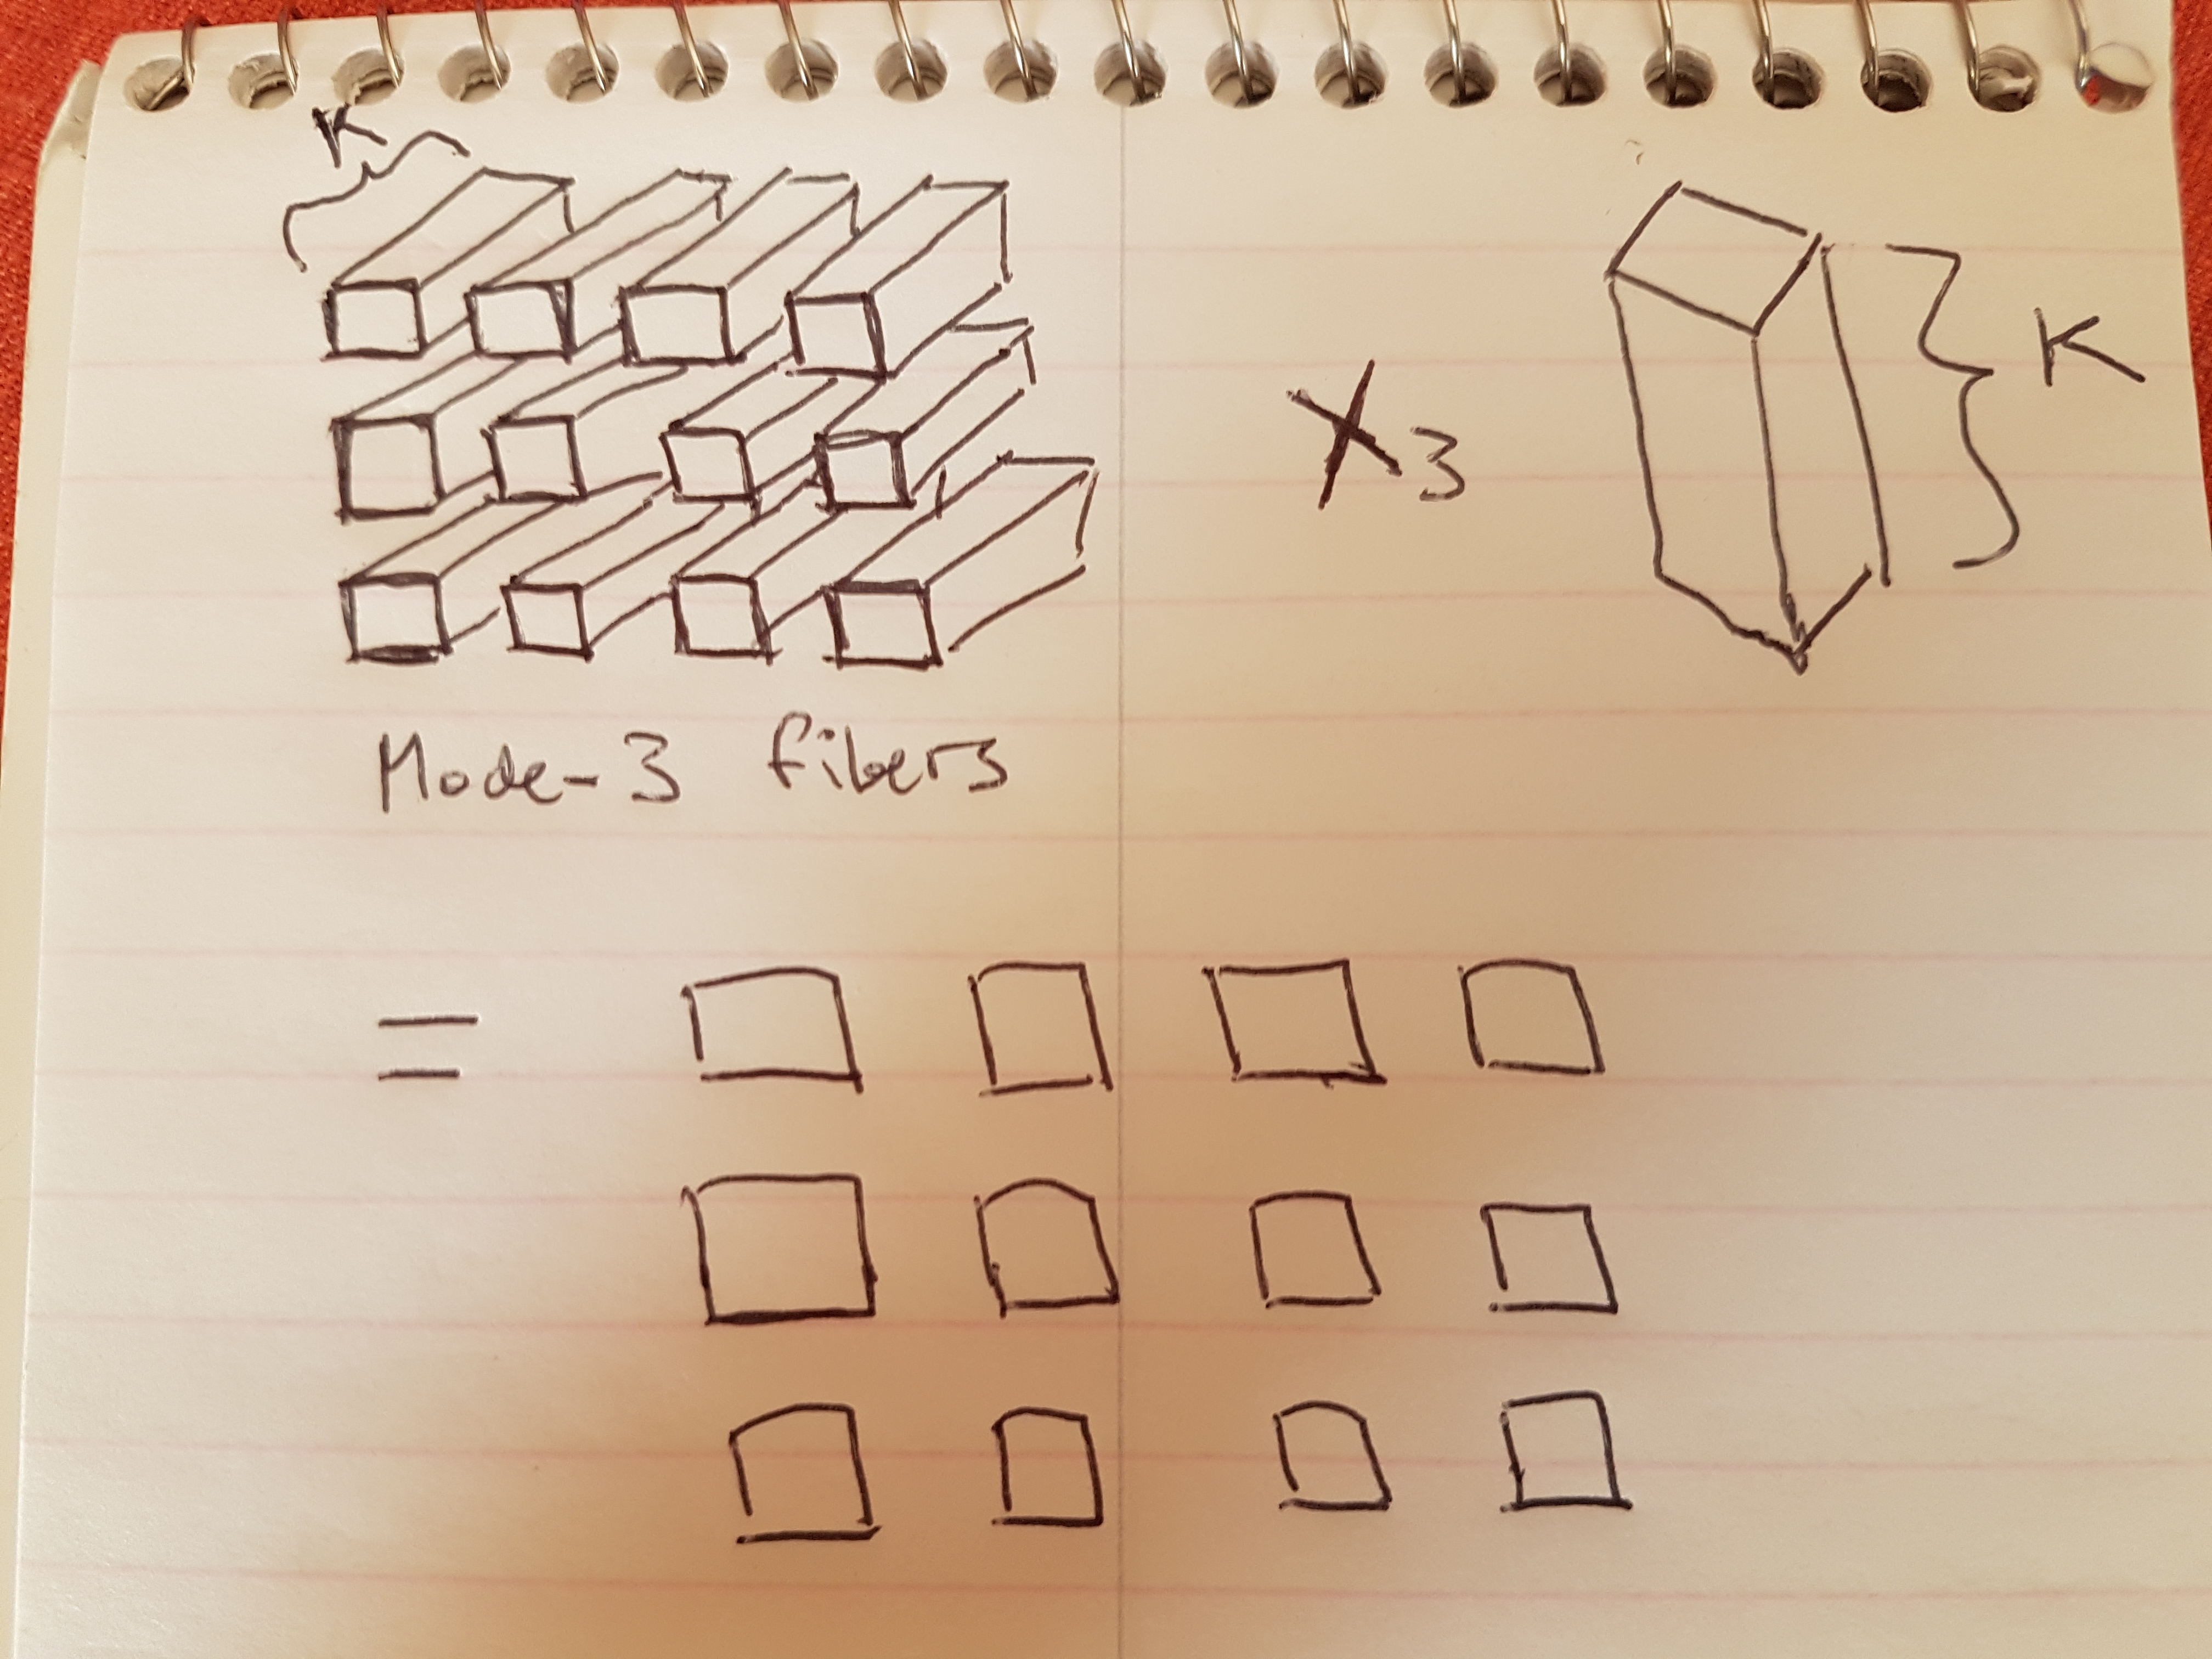 K
X₃ K
Mode-3 fibers
=